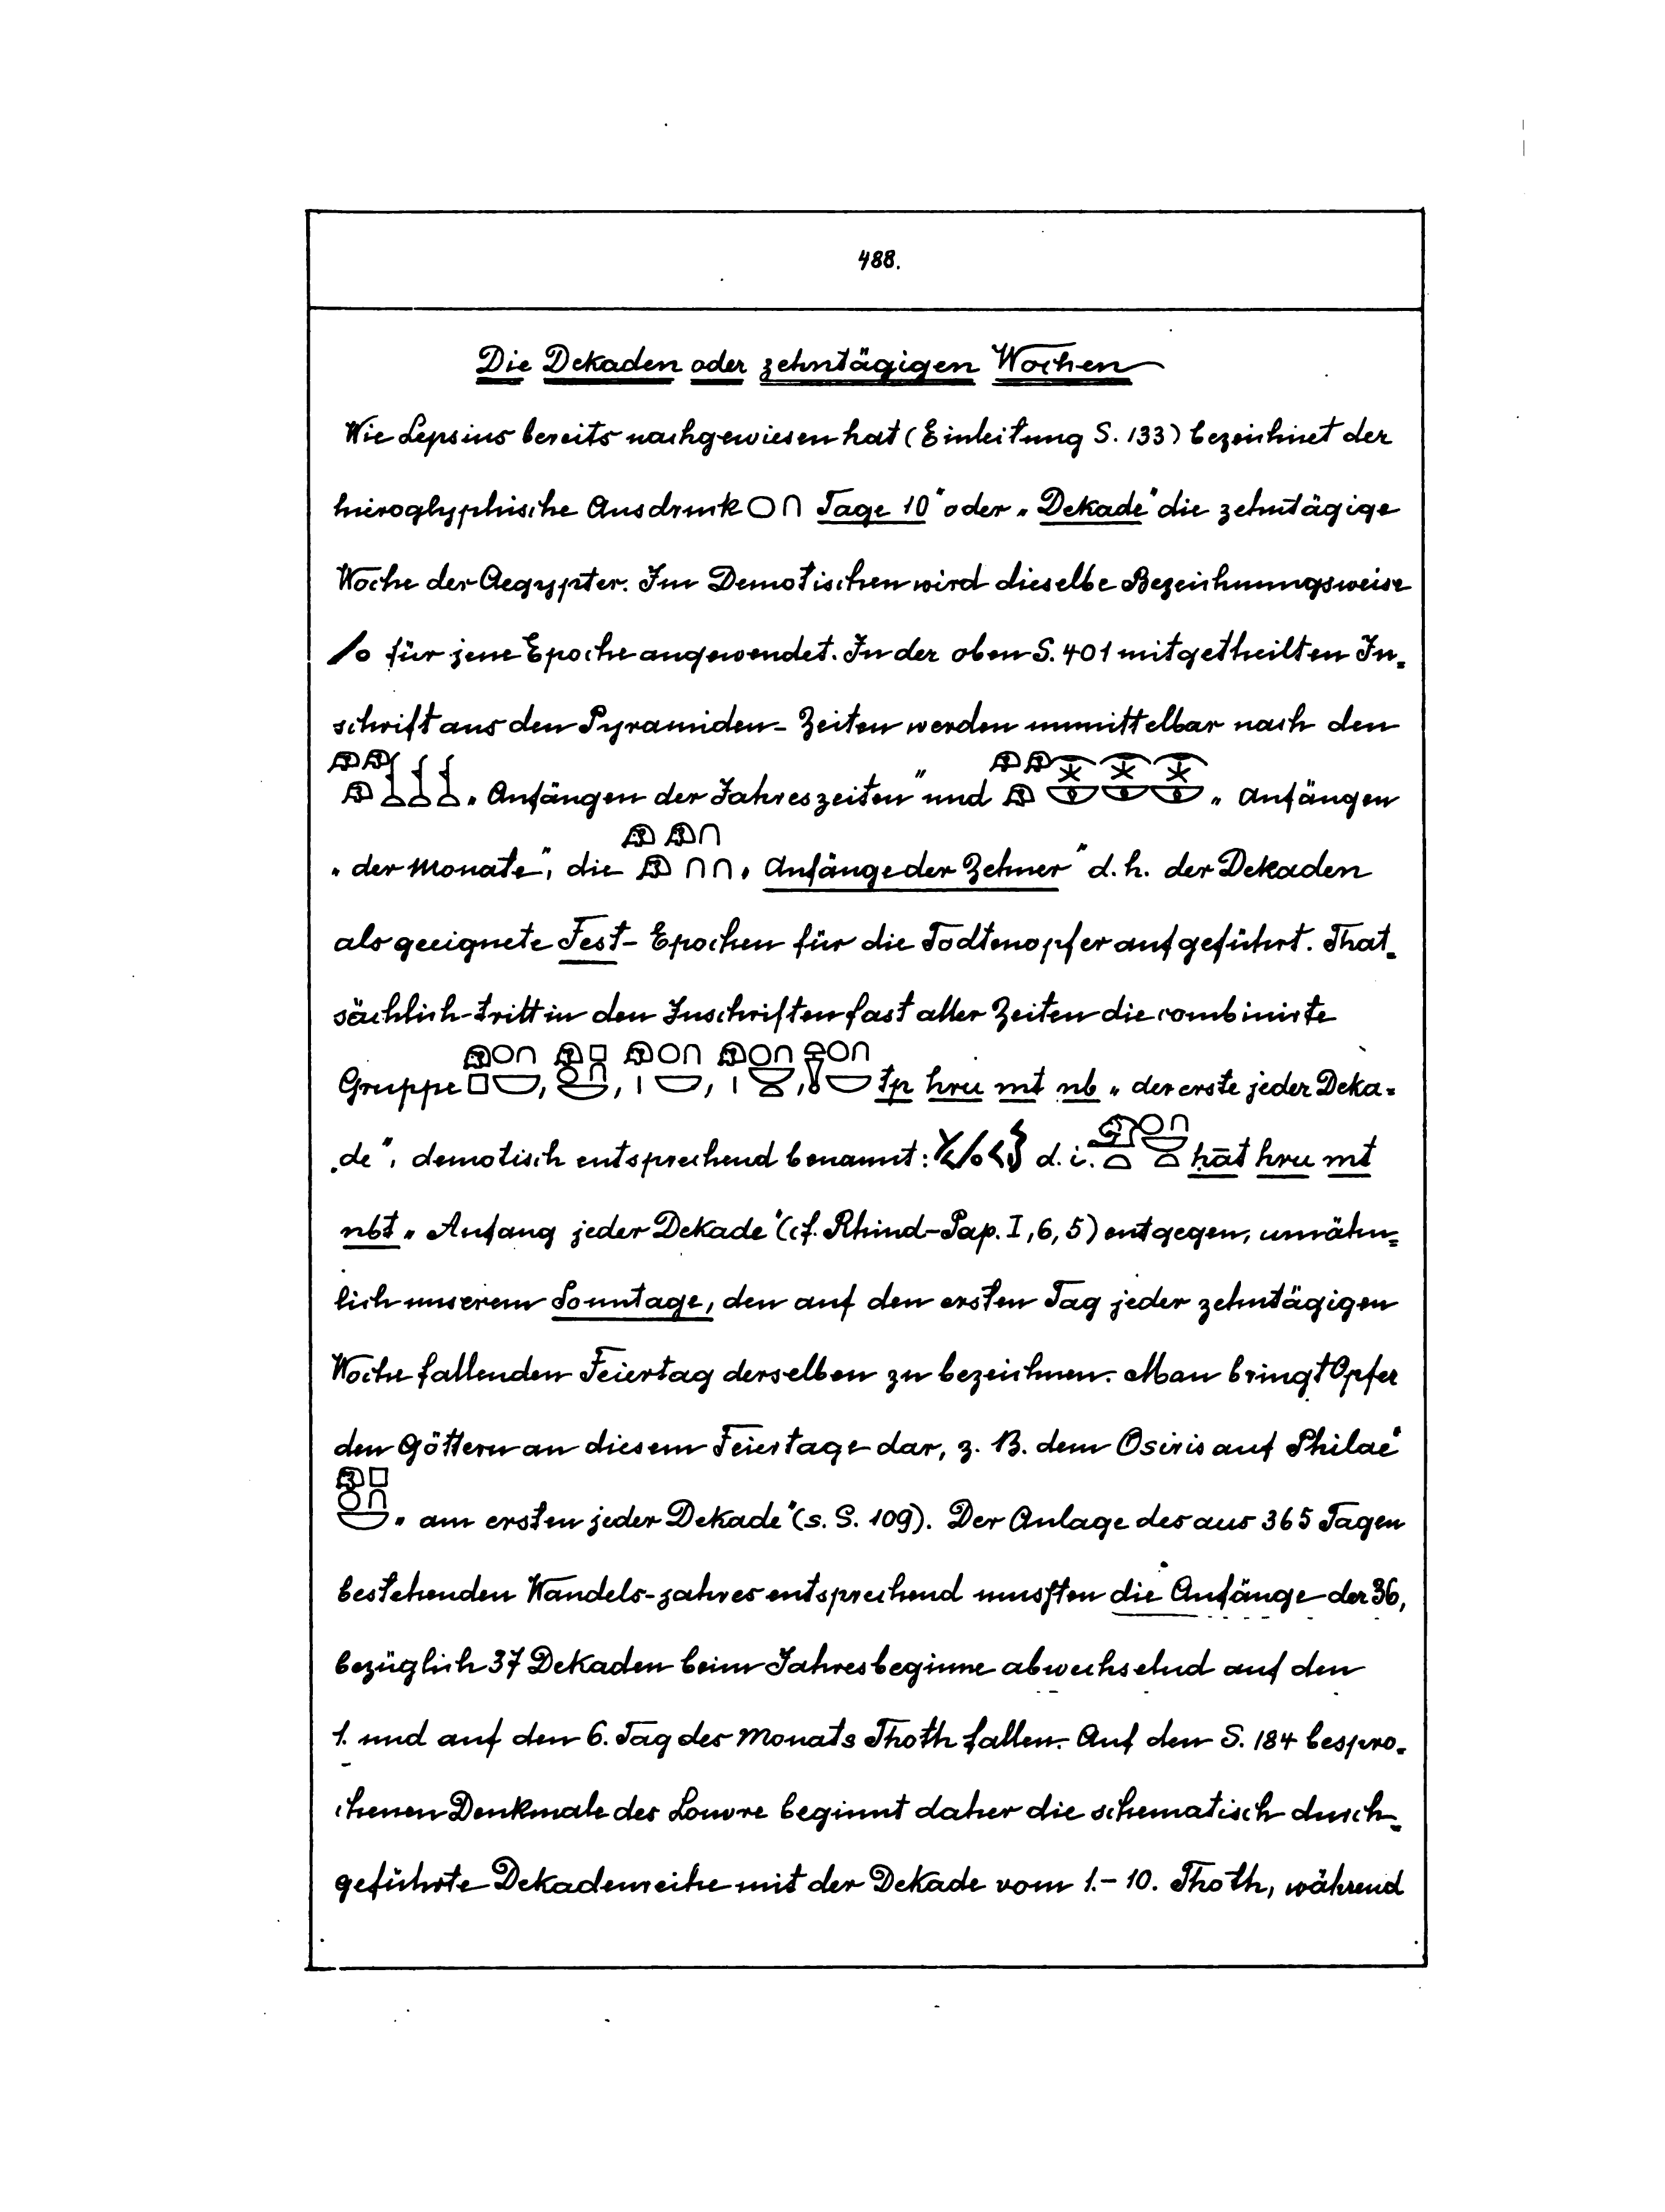 488.
Die Dekaden oder zehntägigen Wochen
Wie Lepsius bereits nachgewiesen hat (Einleitung S. 133) bezeichnet der
hieroglyphische Ausdruck 𓇳𓎆 Tage 10" oder „Dekade" die zehntägige
Woche der Aegypter. Im Demotischen wird dieselbe Bezeichnungsweise
für jene Epoche angewendet. In der oben S. 401 mitgetheilten In-
schrift aus den Pyramiden-Zeiten werden unmittelbar nach den
„Anfängen der Jahreszeiten" und „Anfängen
„der Monate", die „Anfänge der Zehner" d. h. der Dekaden
als geeignete Fest-Epochen für die Todtenopfer aufgeführt. That-
sächlich tritt in den Inschriften fast aller Zeiten die combinirte
Gruppe tp hru mt nb „der erste jeder Deka-
„de", demotisch entsprechend benannt: d. i. ḥāt hru mt
nbt „Anfang jeder Dekade" (cf. Rhind-Pap. I, 6, 5) entgegen, um ähn-
lich unserem Sonntage, den auf den ersten Tag jeder zehntägigen
Woche fallenden Feiertag derselben zu bezeichnen. Man bringt Opfer
den Göttern an diesem Feiertage dar, z. B. dem Osiris auf Philae
„am ersten jeder Dekade" (s. S. 109). Der Anlage des aus 365 Tagen
bestehenden Wandels-jahres entsprechend mussten die Anfänge der 36,
bezüglich 37 Dekaden beim Jahresbeginne abwechselnd auf den
1. und auf den 6. Tag des Monats Thoth fallen. Auf dem S. 184 bespro-
chenen Denkmale des Louvre beginnt daher die schematisch durch-
geführte Dekadenreihe mit der Dekade vom 1.-10. Thoth, während